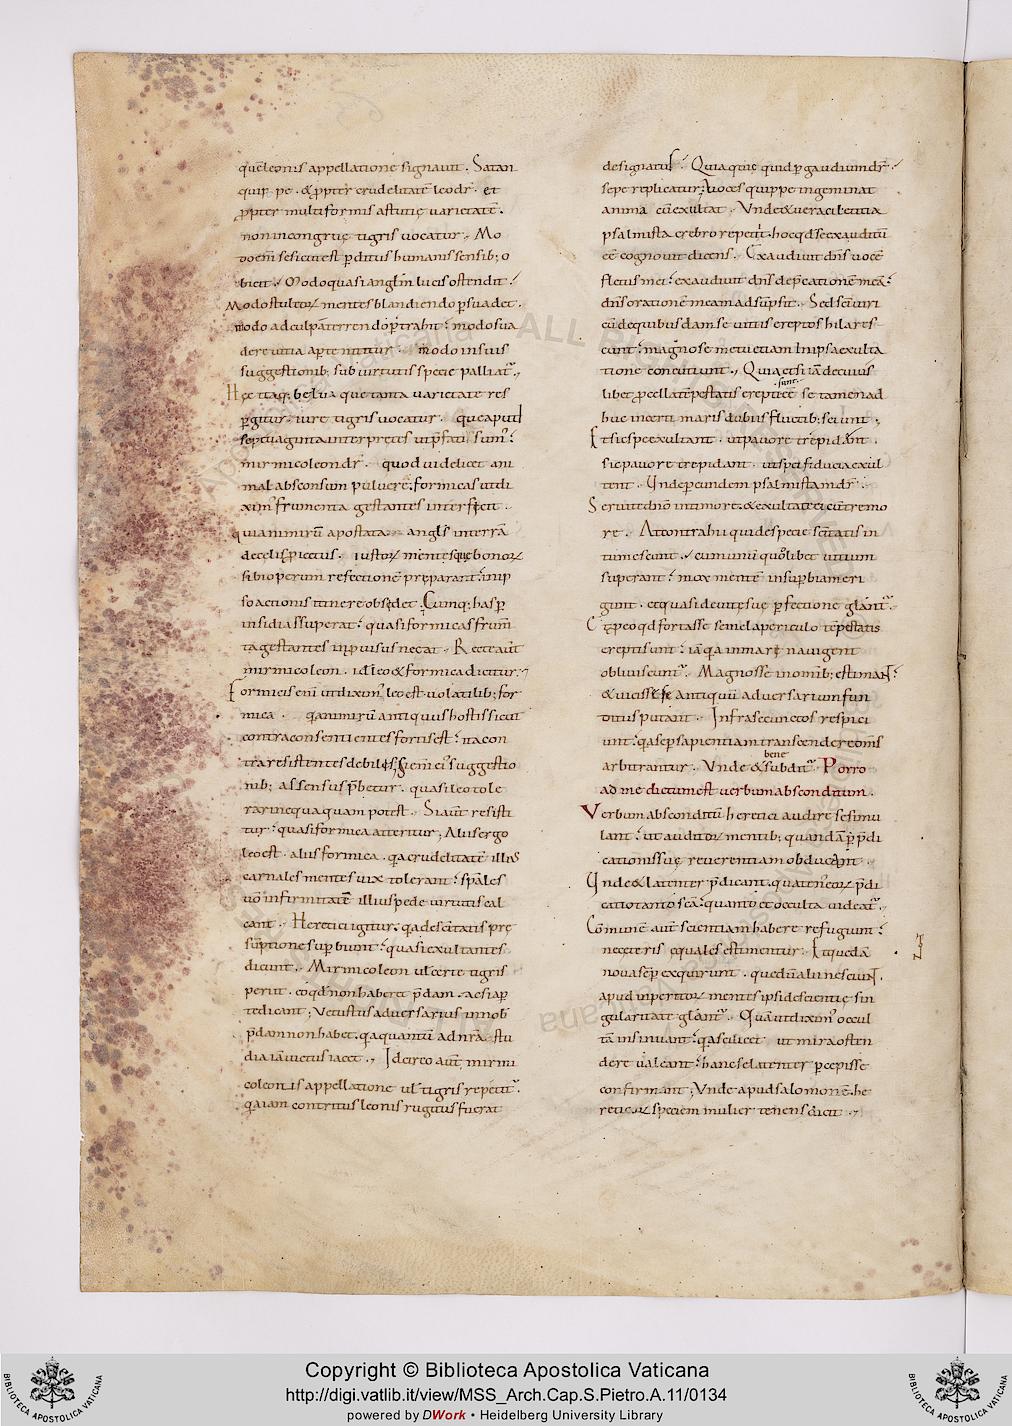 que leonis appellatione signauit. Satan
quip pe. & ꝓpter crudelitatē leo dr̄. et
ꝓpter multiformis astutię uarietatē.
non incongrue tigris uocatur. Mo
do em̄ se sicut est ꝑditus humanis sensib; o
bicit. Modo quasi angl̄m lucis ostendit.
Modo stultoꝝ mentes blandiendo ꝑsuadet.
modo ad culpā terrendo ꝑtrahit. modo sua
dere uitia aꝑte nititur. modo in suis
suggestionib; sub uirtutis specie palliat᷑.
Hęc itaq; belua que tanta uarietate res
ꝑgitur. iure tigris uocatur. que aput
septuaginta interpretes ut p̄fati sum᷒.
mirmicoleon dr̄. quod uidelicet ani
mal absconsum puluere. formicas ut di
xim᷒ frumenta gestantes interficit.
quia nimirū apostata angl̄s in terrā
de celis ꝓiectus. iustoꝝ mentes que bonoꝝ
sibi operum refectionē pręparant. in ip
so actionis itinere obsedet. Cumq; has ꝑ
insidias superat. quasi formicas frum̄
ta gestantes inꝓuisus necat. Recte aut̄
mirmicoleon. id̄ leo & formica dicitur.
Formicis eni ut dixim᷒ leo est. uolatilib; for
mica. q̄a nimirū antiquus hostis sicut
contra consentientes fortis est. ita con
tra resistentes debilis. Si em̄ ei᷒ suggestio
nib; assensus p̄betur. quasi leo tole
rari nequaquam potest. Si aut̄ resisti
tur. quasi formica atteritur; Aliis ergo
leo est. aliis formica. q̄a crudelitatē illius
carnales mentes uix tolerant. sp̄ales
uō infirmitatē illius pede uirtutis cal
cant. Heretici igitur. q̄a de sc̄itatis prę
sūptione suꝑbiunt. quasi exultantes
dicunt. Mirmicoleon ul̄ certe tigris
periit. eo qd̄ non haberet p̄dam. ac si aꝑ
te dicant; Vetustus aduersarius in nob̄
p̄dam non habet. q̄a quantū ad nr̄a stu
dia iā uictus iacet. Idcirco aut̄ mirmi
coleontis appellatione ul̄ tigris repetit᷑.
q̄a iam contritus leonis rugitus fuerat
designatus. Quia quę quid ꝑ gaudium dr̄.
sepe replicatur. Voces quippe ingeminat
anima cū exultat. Vnde & ueraci letitia
psalmista crebro repetit. hoc qd̄ se exauditū
eē cognouit dicens. Exaudiuit dn̄s uocē
fletus mei. exaudiuit dn̄s depcationē meā.
dn̄s orationē meam adsūpsit. Sed sc̄i uiri
cū de quibusdam se uitiis ereptos hilares
cunt. magno se metu etiam in ipsa exulta
tione concutiunt. Quia etsi iā de cuius
libet ꝓcellatēpestatis erepti sunt. se tamen ad
huc incerti maris dubiis fluctib; sciunt.
Et sic spe exultant. ut pauore trepidant.
sic pauore trepidant. ut spei fiducia exul
tent. Vnde ꝑ eundem psalmistam dr̄.
Seruite dn̄o in timore. & exultate ei cū tremo
re. At contra hii qui de specie sc̄itatis in
tumescunt. cum unū quodlibet uitium
superant. mox mentē in suꝑbiam eri
gunt. et quasi de uitę suę ꝑfectione glānt᷑.
Et ꝑ eo qd̄ fortasse semel a periculo tēpestatis
erepti sunt. iā q̄a in mari nauigent
obliuiscunt᷑. Magnos se in omib; estimant.
& uicisse se antiquū aduersarium fun
ditus putant. Infra se cunctos respici
unt. q̄a se ꝑ sapientiam transcendere om̄s
arbitrantur. Vnde & bene subdit᷑. Porro
ad me dictum est uerbum absconditum.
Verbum absconditū heretici audire se simu
lant. ut auditoꝝ mentib; quandā ꝑ p̄di
cationis suę reuerentiam obducant.
Vnde & latenter p̄dicant. quaten᷒ eoꝝ p̄di
catio tanto sc̄a. quanto et occulta uideat᷑.
Comunē aut̄ scientiam habere refugiunt.
ne ceteris equales estimentur. Et quedā
noua semꝑ exquirunt. que dū alii nesciunt.
apud inperitoꝝ mentes ipsi de scientię sin
gularitate glānt᷑. Quā ut dixim᷒ occul
tā insinuant. q̄a scilicet ut mira osten
dere ualeant. hanc se latenter ꝑcepisse
confirmant; Vnde apud salomonē he
reticoꝝ speciem mulier tenens dicit.
Copyright © Biblioteca Apostolica Vaticana
http://digi.vatlib.it/view/MSS_Arch.Cap.S.Pietro.A.11/0134
powered by DWork • Heidelberg University Library